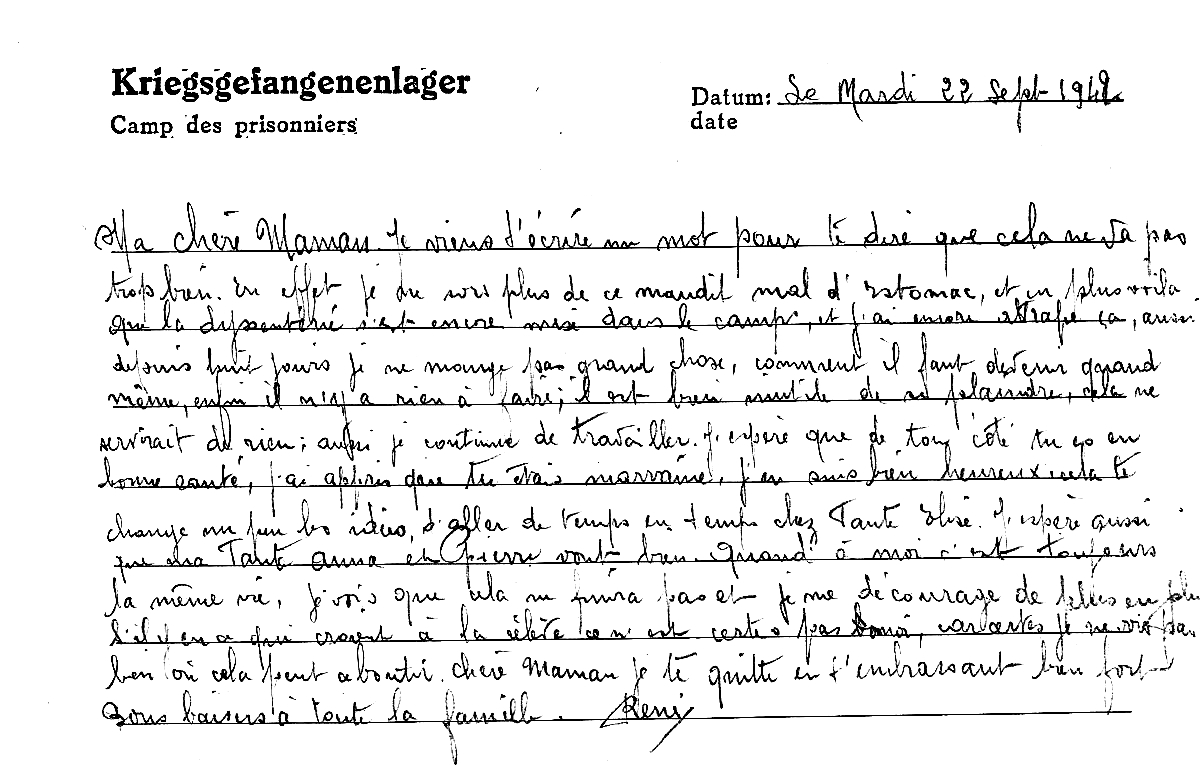 Kriegsgefangenenlager
Camp des prisonniers
Datum: Le Mardi 22 Sept 1942
date
Ma chère Maman. Je viens t'écrire un mot pour te dire que cela ne va pas
trop bien. En effet je ne sors plus de ce maudit mal d'Estomac, et en plus voilà
que la dyssenterie s'est encore mise dans le camp, et j'ai encore attrapé ça, aussi
depuis huit jours je ne mange pas grand chose, comment il faut devenir quand
même, enfin il n'y a rien à faire, il est bien inutile de se plaindre, cela ne
servirait de rien; aussi je continue de travailler. J'espère que de ton côté tu es en
bonne santé, j'ai appris que tu étais marraine, j'en suis bien heureux cela te
change un peu les idées, d'aller de temps en temps chez Tante Elise. J'espère aussi
que ma Tante Anna et Pierre vont bien. Quand à moi c'est toujours
la même vie, je vois que cela ne finira pas et je me décourage de plus en plus
s'il y en a qui croient à la ce n'est certes pas moi, car certes je ne vois pas
bien où cela peut aboutir. Chère Maman je te quitte en t'embrassant bien fort
Bons baisers à toute la famille. René